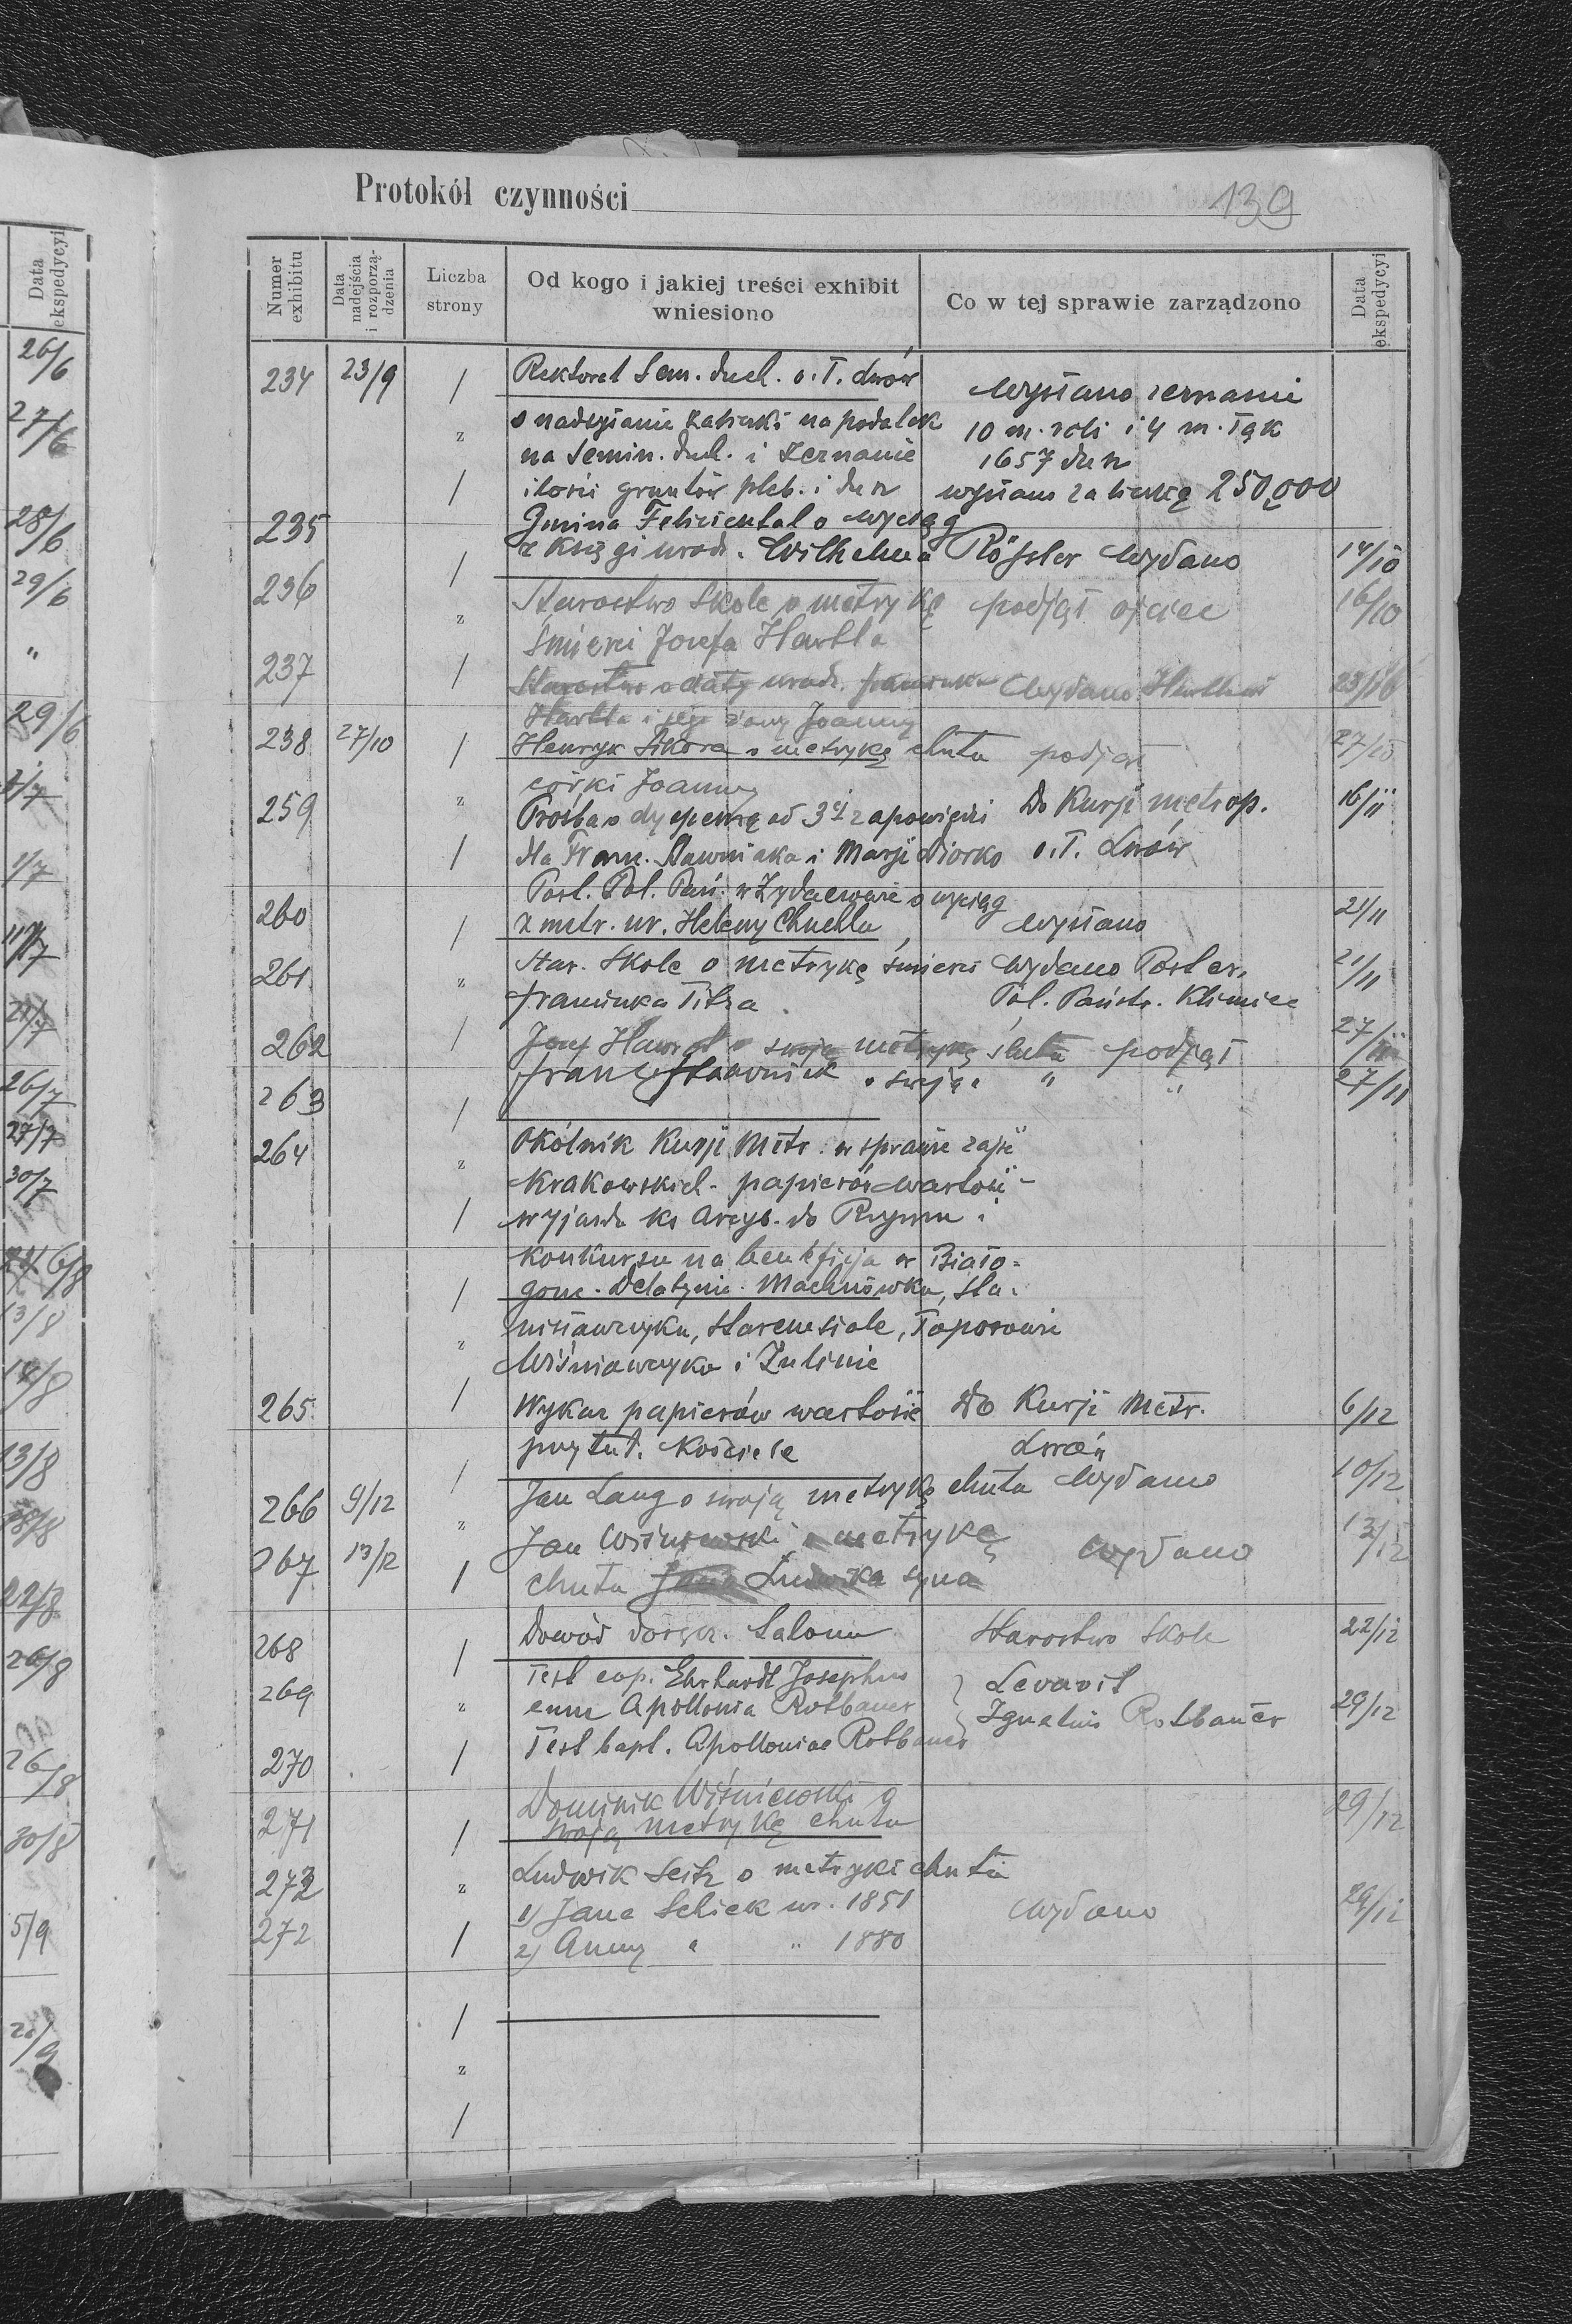 Protokół czynności 139
Data ekspedycyi
Numer exhibitu
Data nadejścia i rozporządzenia
Liczba strony
Od kogo i jakiej treści exhibit wniesiono
Co w tej sprawie zarządzono
Data ekspedycyi
26/6
27/6
28/6
29/6
"
29/6
1/7
26/7
27/7
30/7
13/8
13/8
22/8
26/8
26/8
30/8
5/9
234 23/9 Rektorat Sem. duch. o. ł. Lwów wysłano zeznanie
o nadsyłanie zaliczki na podatek 10 m. roli i 4 m. łąk
na Semin. duch. i zeznanie 1657 dusz
ilości gruntów pleb. i dusz wysłano zaliczkę 250,000
235 Gmina Felicienthal o wyciąg
z księgi urodz. Wilhelma Rößler wydano 14/10
236 Starostwo Skole o metrykę podjął ojciec 16/10
śmierci Józefa Hawlla
237 Starostwo o datę urodz. Franciszka wydano
Hawlla i jego żony Joanny
238 27/10 Henryk Sikora o metrykę chrztu podjął 27/10
córki Joanny
259 Prośba o dyspensę od 3ej zapowiedzi Do Kurji metrop. 16/11
dla Fran. Sławniaka i Marji Diorko o. ł. Lwów
260 Post. Pol. Pań. w Żydaczowie o wyciąg
z metr. ur. Heleny Chuchla wysłano 21/11
261 Star. Skole o metrykę śmierci wydano Poster. 21/11
Franciszka Titza Pol. Państw. Klimiec
262 Józef o swoją metrykę ślubu podjął 27/11
263 Franc. Sławniak o swoją " " 27/11
264 Okólnik Kurji Metr. w sprawie zajść
krakowskich - papierów wartość -
wyjazdu ks Arcyb. do Rzymu i
konkursu na beneficja w Biało-
gone - Delatynie - Machnówku, Sta-
nisławczyku, Staremsiole, Toporowie
Wiśniowczyku i Żulinie
265 Wykaz papierów wartość Do Kurji Metr. 6/12
przy tut. kościele Lwów
266 9/12 Jan Lang o swoją metrykę chrztu wydano 10/12
267 13/12 Jan Wiśniewski o metrykę wydano 13/12
chrztu Ludwika syna
268 Dowód doręcz. Salomu Starostwo Skole 22/12
269 Test cop. Ehrhardt Josephus } Levavit
cum Apollonia Rotbauer } Ignatius Rotbauer 29/12
270 Test bapt. Apolloniae Rotbauer
271 Dominik Wiśniewski o 29/12
swoją metrykę chrztu
273 Ludwik Seitz o metryki chrztu
272 1) Jana Schick ur. 1851 wydano 29/12
2) Anny " " 1880